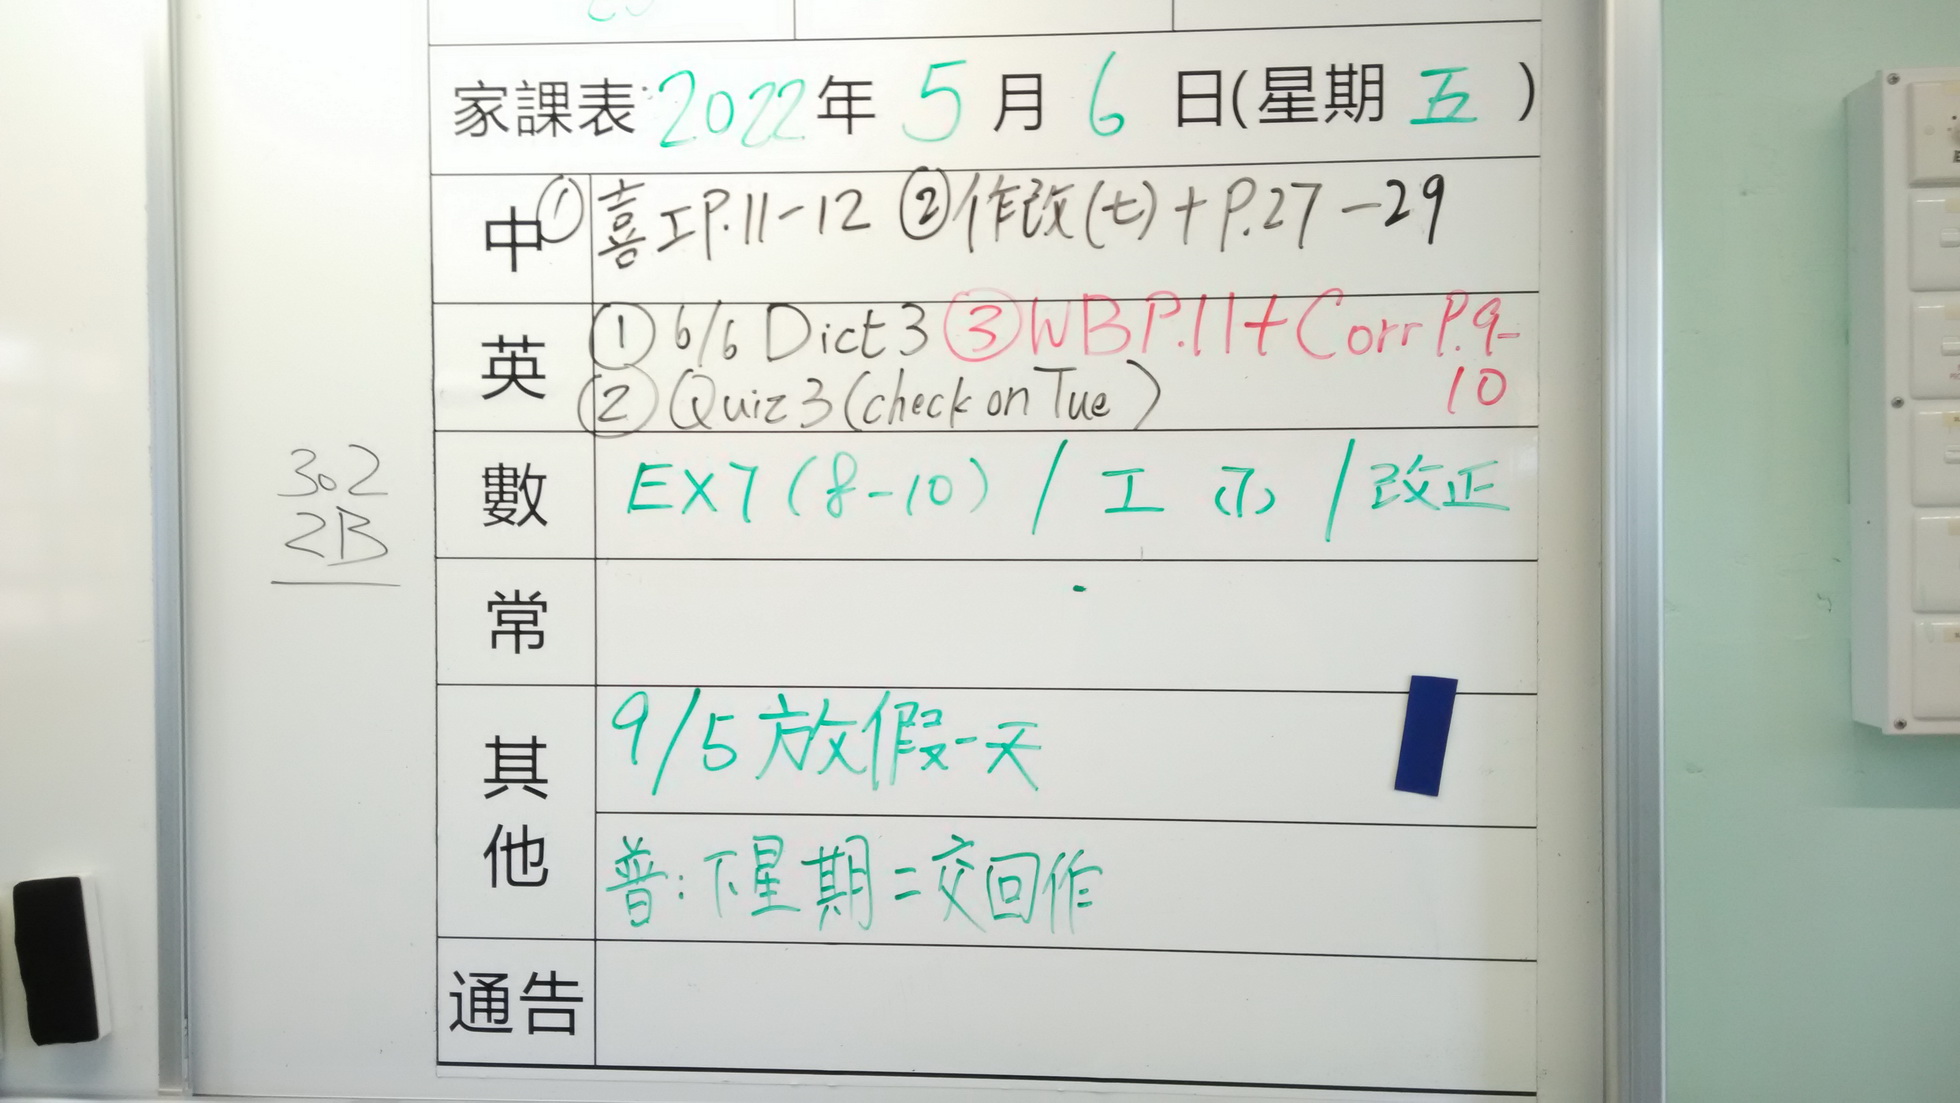 家課表:2022年 5月 6日(星期 五 )
中 ① 喜工P.11-12 ②作改(七)+P.27-29
英 ① 6/6 Dict 3 ③WB P.11+Corr P.9-10
② Quiz 3 (check on Tue)
數 EX7(8-10) / 工 (7) / 改正
302
2B
常
其他 9/5 放假一天
普:下星期二交回作
通告